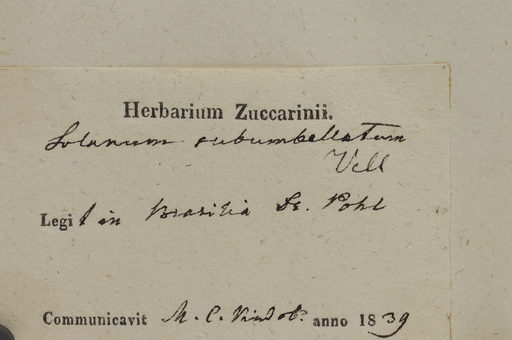 Herbarium Zuccarinii.
Solanum subumbellatum
Vell
Legit in Brasilia Dr. Pohl
Communicavit M. C. Vindob. anno 1839